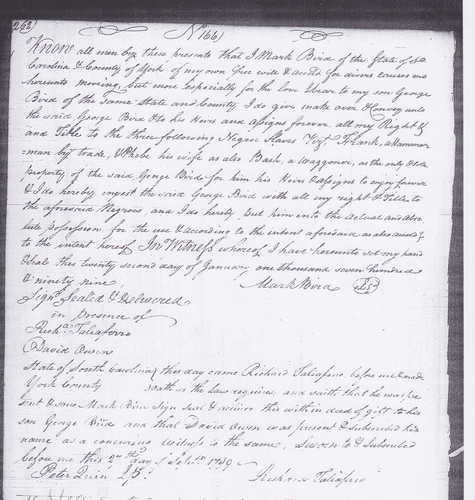 262
No 166
Know all men by these presents that I Mark Bird of the State of So
Carolina & County of York of my own free will & and for divers causes me
hereunto moving, but more especially for the Love I bear to my son George
Bird of the same State and County, I do give make over & convey unto
the said George Bird & to his Heirs and assigns forever all my Right &
and Title to the three following Negroe Slaves Viz. Frank, a Hammer
=man by trade, & Phebe his wife as also Bash, a Waggoner, as the only
property of the said George Bird for him his Heirs & assigns to enjoy forever
& I do hereby invest the said George Bird with all my right & Title to
the aforesaid Negroes and I do hereby put him into the actual and abso
lute possession for the use & according to the intent aforesaid as also
to the intent hereof In Witness whereof I have hereunto set my hand
& Seal this twenty second day of January one thousand seven hundred
& ninety nine,
Mark Bird
Sign'd Sealed & Delivered
in presence of
Rich.d Taliaferro
David Owen
State of South Carolina this day came Richard Taliaferro before me & made
York County oath as the law requires, and saith that he was pre
sent & saw Mark Bird sign seal & this within deed of gift to his
son George Bird and that David Owen was present & subscribed his
name as a witness to the same, Sworn to & subscribed
before me this day of
Peter Quin
Taliaferro